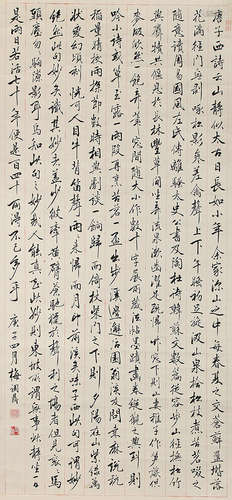 唐子西詩云山靜似太古日長如小年余家深山之中每春夏之交蒼蘚盈堦落
花滿徑門無剝啄松影參差禽聲上下午睡初足旋汲山泉拾松枝煮苦茗啜之
隨意讀周易國風左氏傳離騷太史公書及陶杜詩韓蘇文數篇從容步山徑撫松竹
與麛犢共偃息於長林豐草間坐弄流泉漱齒濯足既歸竹窗下則山妻稚子作筍蕨供
麥飯欣然一飽弄筆窗間隨大小作數十字展所藏法帖墨蹟畫卷縱觀之興到則
吟小詩或草玉露一兩段再烹苦茗一盃出步溪邊邂逅園翁溪友問桑麻說秔
稻量晴校雨探節數時相與劇談一餉歸而倚杖柴門之下則夕陽在山紫綠萬
狀變幻頃刻恍可人目牛背笛聲兩兩來歸而月印前溪矣味子西此句可謂妙
絕然此句妙矣識其妙者蓋少彼牽黃臂蒼馳獵於聲利之場者但見袞袞馬
頭塵匆匆駒隙影耳烏知此句之妙哉人能真知此妙則東坡所謂無事此靜坐一日
是兩日若活七十年便是百四十所得不已多乎 四月